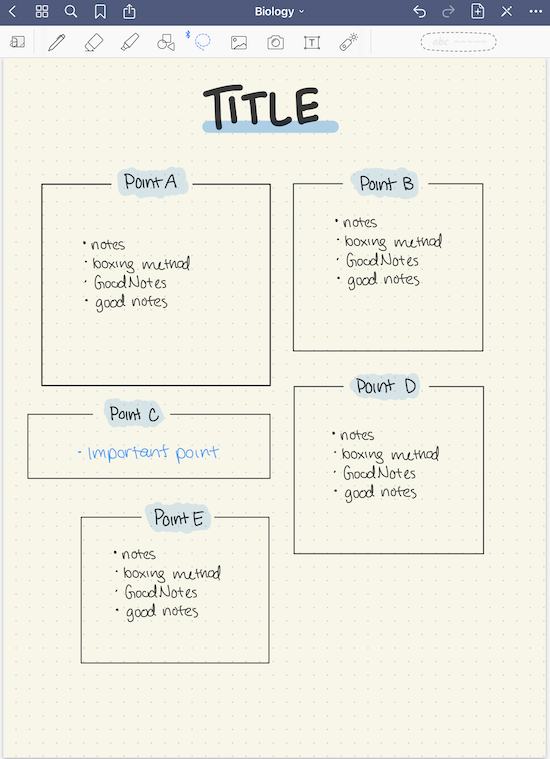 Biology
abc
TITLE
Point A
• notes
• boxing method
• GoodNotes
• good notes
Point B
• notes
• boxing method
• GoodNotes
• good notes
Point C
• Important point
Point D
• notes
• boxing method
• GoodNotes
• good notes
Point E
• notes
• boxing method
• GoodNotes
• good notes